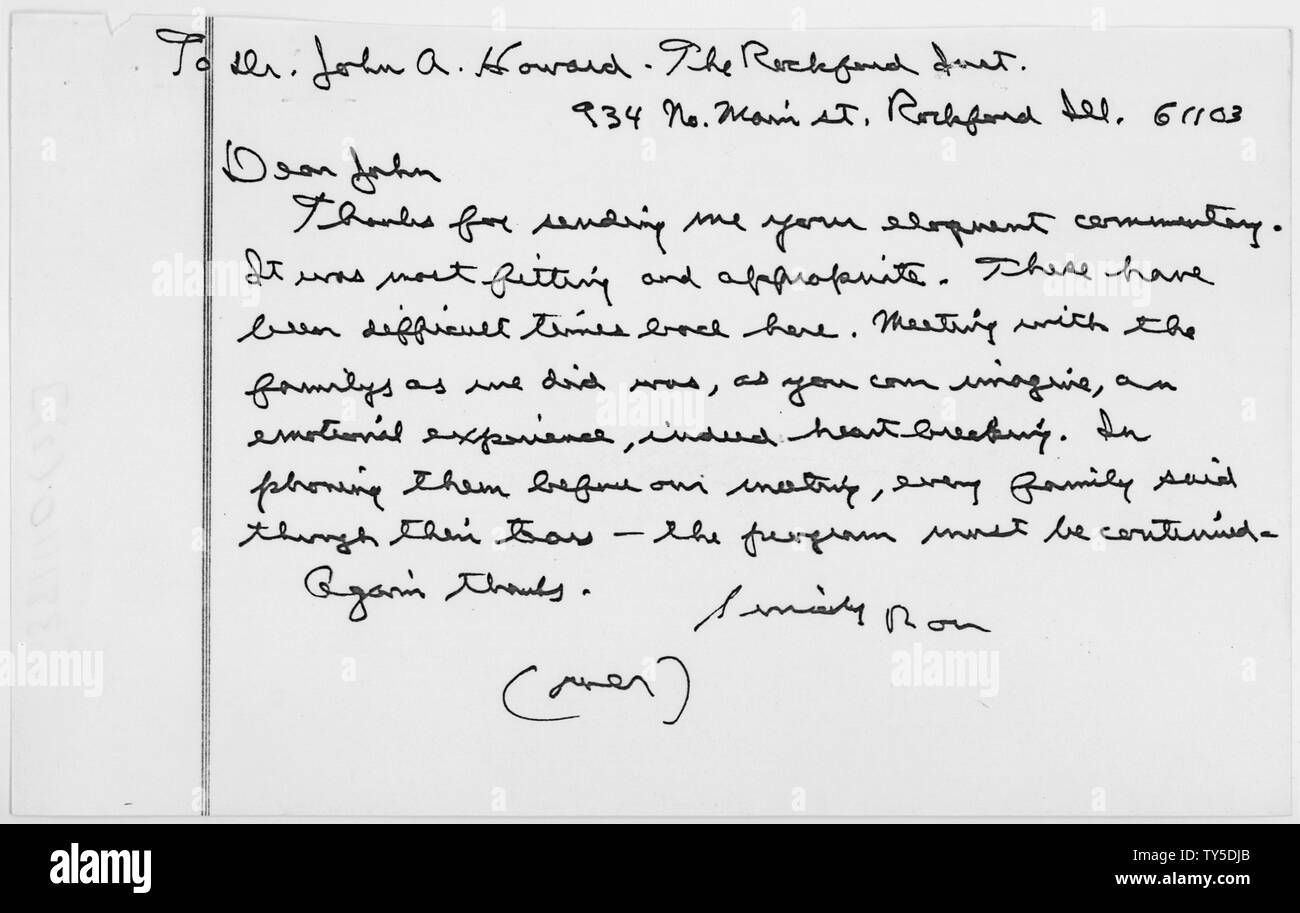 To Dr. John A. Howard - The Rockford Inst.
934 No. Main st. Rockford Ill. 61103
Dear John
Thanks for sending me your eloquent commentary.
It was most fitting and appropriate. These have
been difficult times back here. Meeting with the
familys as we did was, as you can imagine, an
emotional experience, indeed heart breaking. In
phoning them before our meeting, every family said
through their tears — the program must be continued-
Again thanks.
Sincerely Ron
(over)
alamy
alamy stock photo
TY5DJB
www.alamy.com